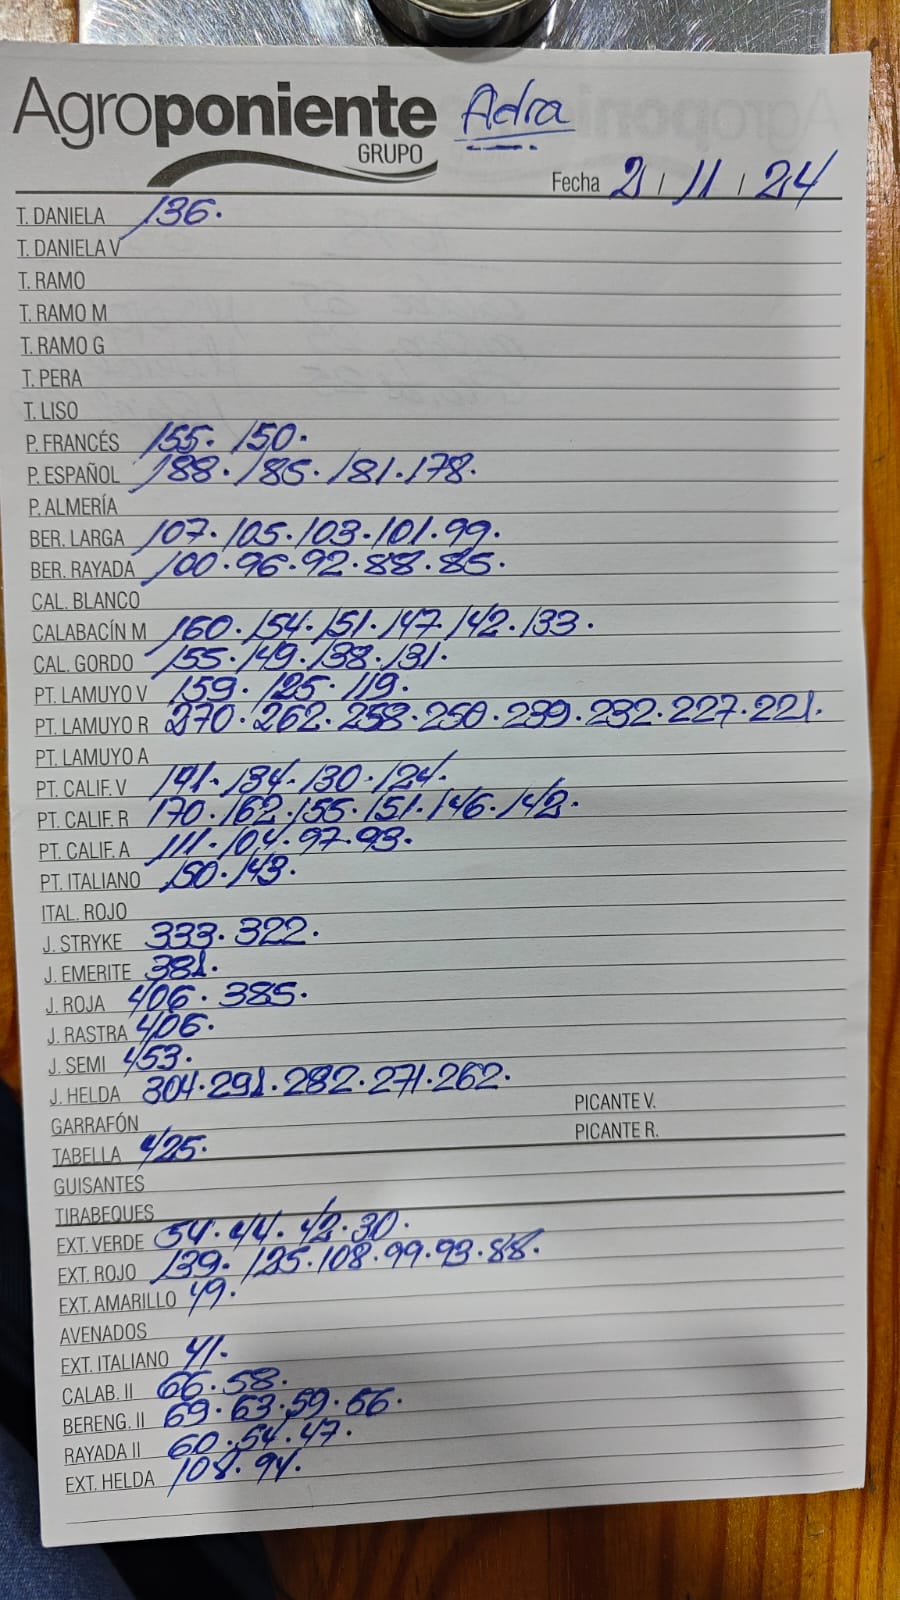 Agroponiente Adra
GRUPO
Fecha 2 / 11 / 24
T. DANIELA 136.
T. DANIELA V
T. RAMO
T. RAMO M
T. RAMO G
T. PERA
T. LISO
P. FRANCÉS 155. 150.
P. ESPAÑOL 188. 185. 181. 178.
P. ALMERÍA
BER. LARGA 107. 105. 103. 101. 99.
BER. RAYADA 100. 96. 92. 88. 85.
CAL. BLANCO
CALABACÍN M 160. 154. 151. 147. 142. 133.
CAL. GORDO 155. 149. 138. 131.
PT. LAMUYO V 159. 125. 119.
PT. LAMUYO R 270. 262. 258. 250. 239. 232. 227. 221.
PT. LAMUYO A
PT. CALIF. V 141. 134. 130. 124.
PT. CALIF. R 170. 162. 155. 151. 146. 142.
PT. CALIF. A 111. 104. 97. 93.
PT. ITALIANO 150. 143.
ITAL. ROJO
J. STRYKE 333. 322.
J. EMERITE 381.
J. ROJA 406. 385.
J. RASTRA 406.
J. SEMI 453.
J. HELDA 304. 291. 282. 271. 262.
GARRAFÓN PICANTE V.
TABELLA 425. PICANTE R.
GUISANTES
TIRABEQUES
EXT. VERDE 54. 44. 42. 30.
EXT. ROJO 139. 125. 108. 99. 93. 88.
EXT. AMARILLO 49.
AVENADOS
EXT. ITALIANO 41.
CALAB. II 66. 58.
BERENG. II 69. 63. 59. 56.
RAYADA II 60. 54. 47.
EXT. HELDA 108. 94.